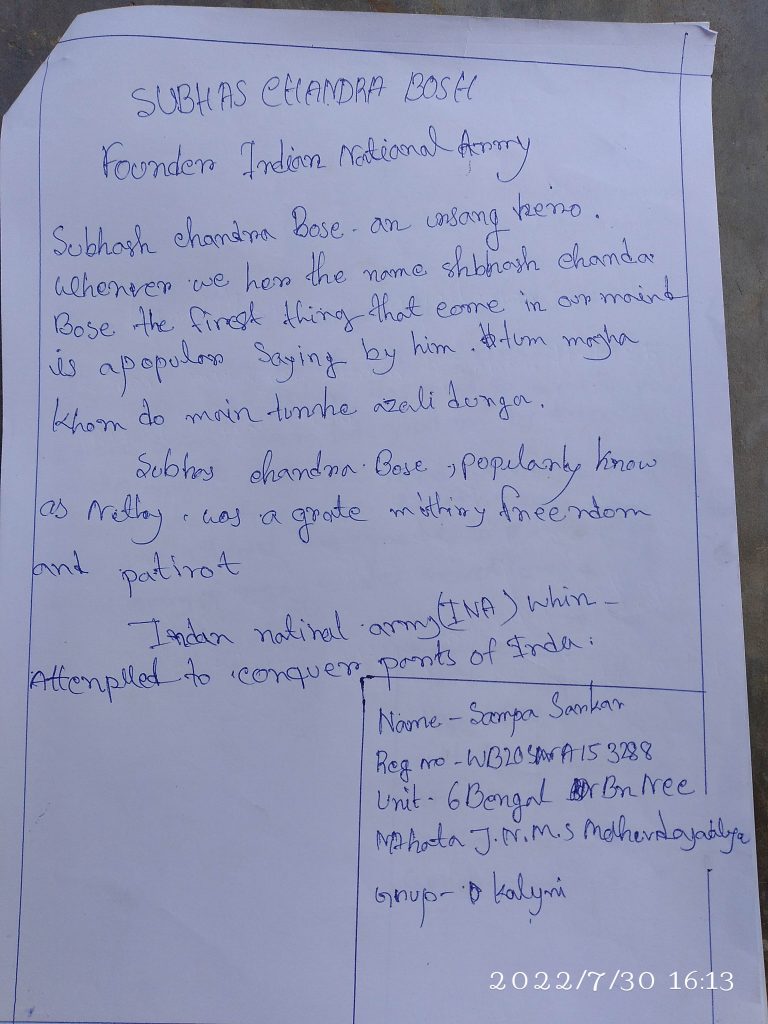 SUBHAS CHANDRA BOSH
Founder Indian National Army
Subhash chandra Bose - an unsang heiro.
whenever we her the name shbhash chanda
Bose the firest thing that come in our maind
is a popular saying by him. tum mogha
khom do main tumhe azali dunga.
Subhas chandra Bose, popularly know
as was a grate freendom
and patirot
Indan natinal army (INA) whin -
Attenplled to conquer parts of Inda.
Name - Sampa Sarkar
Reg no - 153288
Unit - 6 Bengal Bn Nee
J.N.M.S
Group - kalyni
2022/7/30 16:13